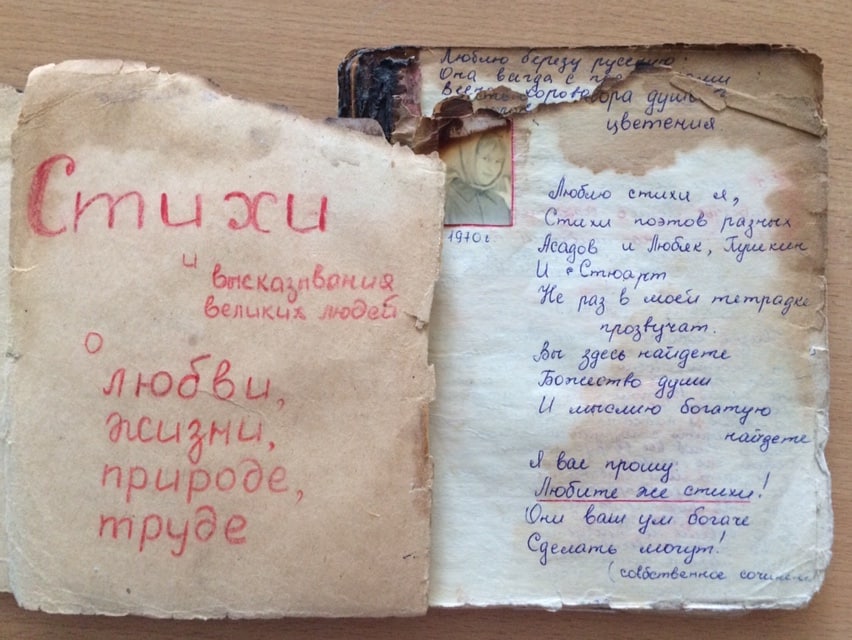 Стихи
и
высказывания
великих людей
о
любви,
жизни,
природе,
труде
Люблю березу русскую:
Она всегда с
хоровода душ
цветения
1970 г.
Люблю стихи я,
Стихи поэтов разных
Асадов и Любек, Пушкин
И Стюарт
Не раз в моей тетрадке
прозвучат.
Вы здесь найдете
Божество души
И мыслию богатую
найдете
Я вас прошу
Любите же стихи!
Они ваш ум богаче
Сделать могут!
(собственное